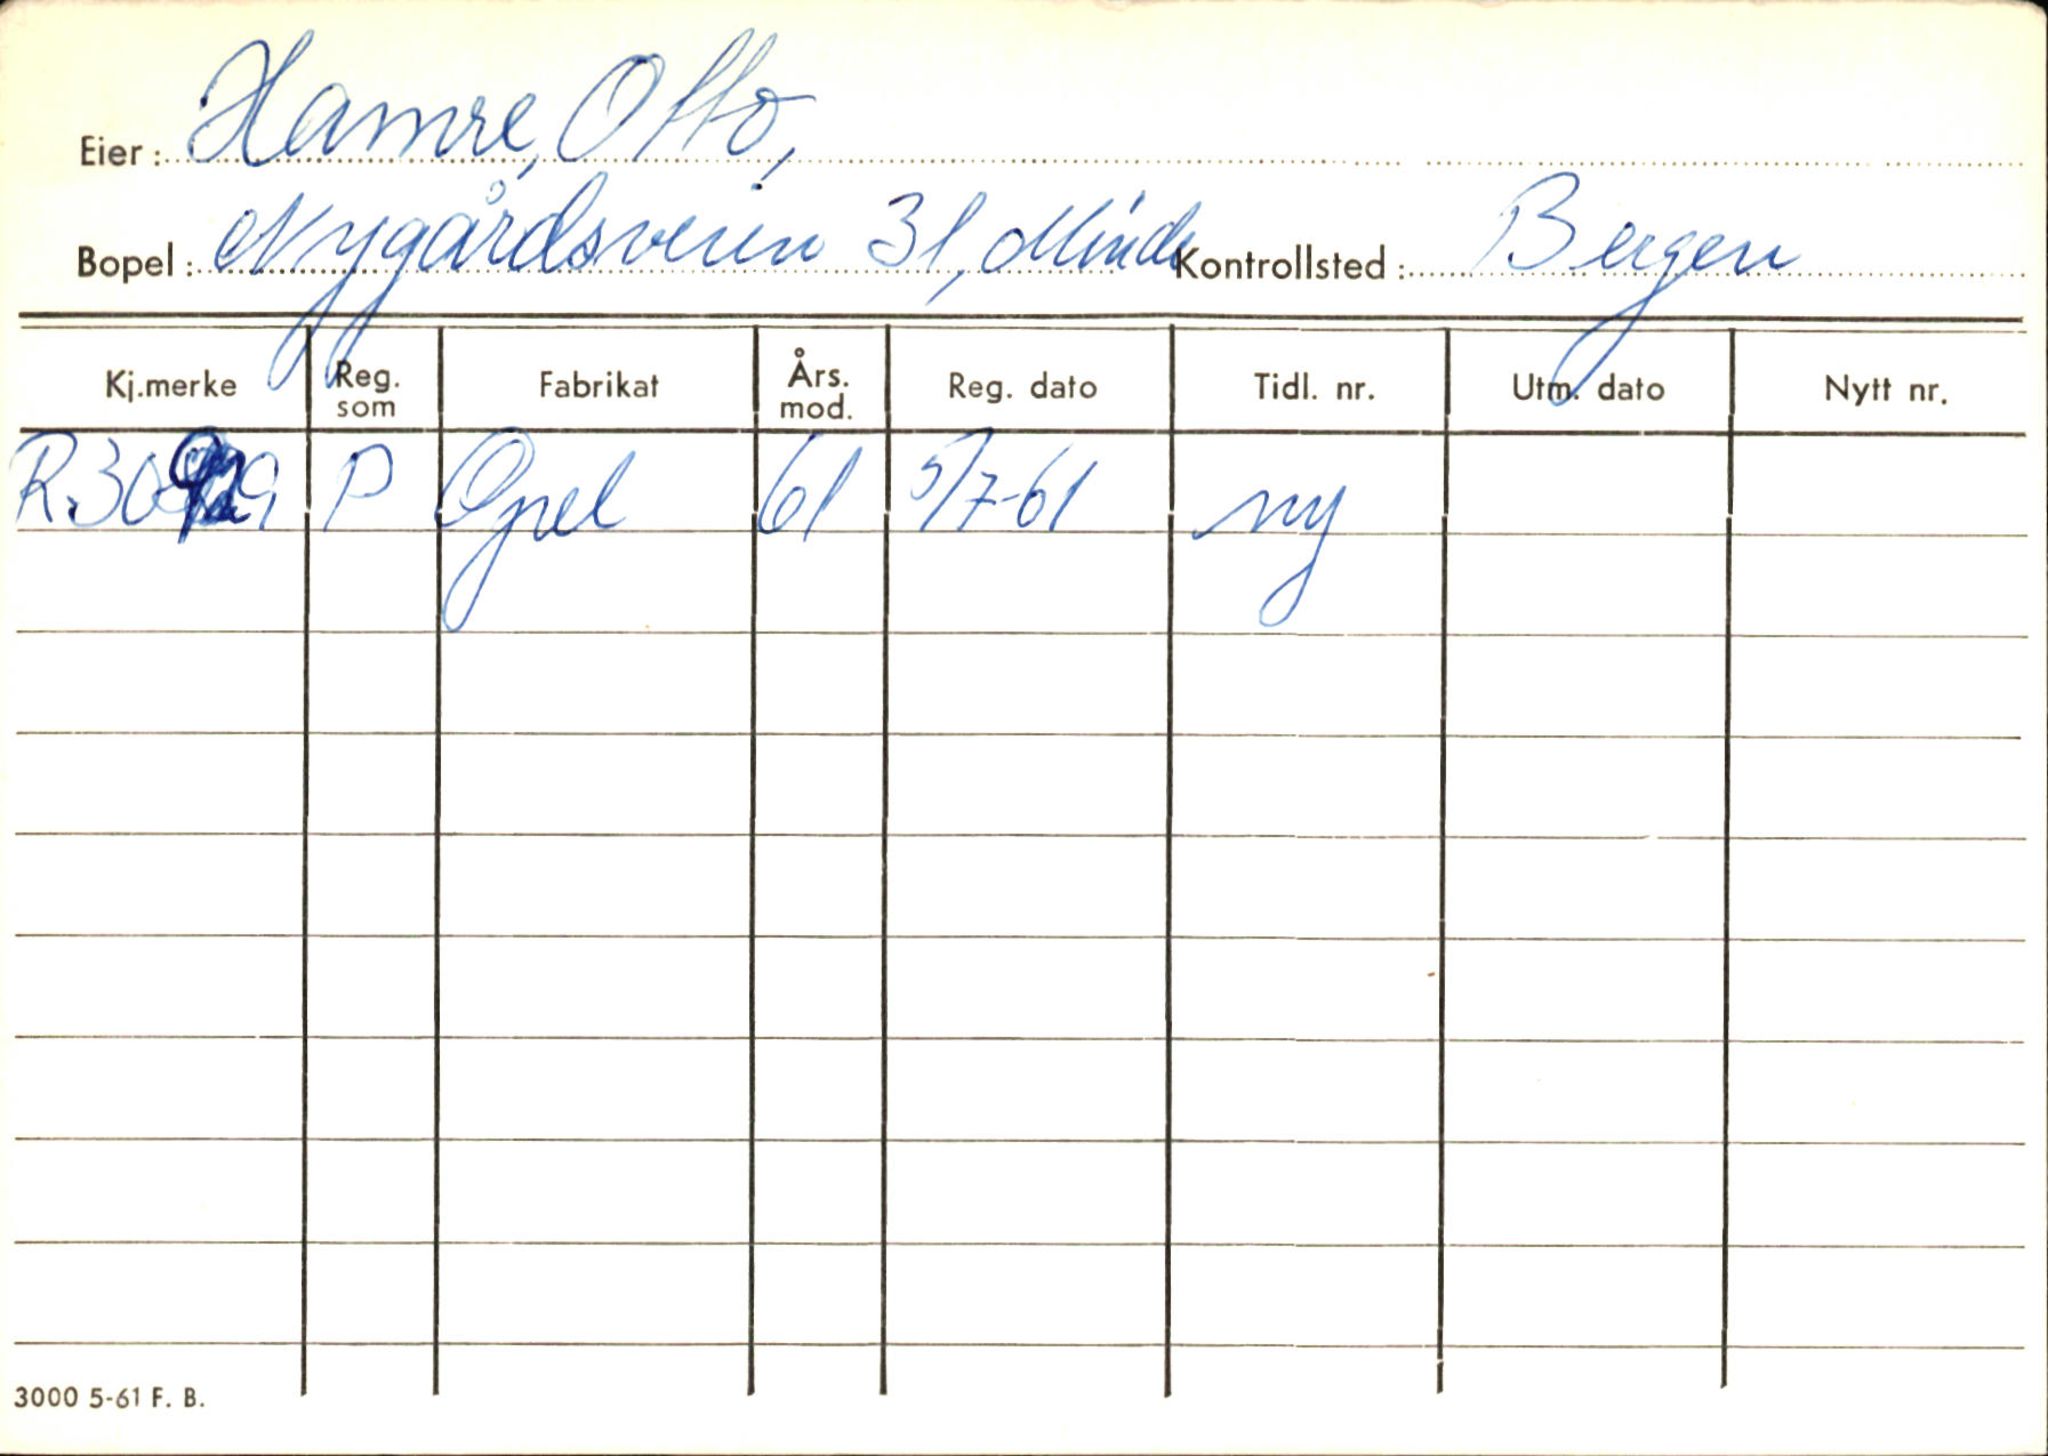 Eier: Hamre, Otto,
Bopel: Nygårdsveien 31, Minde Kontrollsted: Bergen
Kj.merke Reg. som Fabrikat Års. mod. Reg. dato Tidl. nr. Utm. dato Nytt nr.
P Opel 61 5/7-61 ny
3000 5-61 F. B.